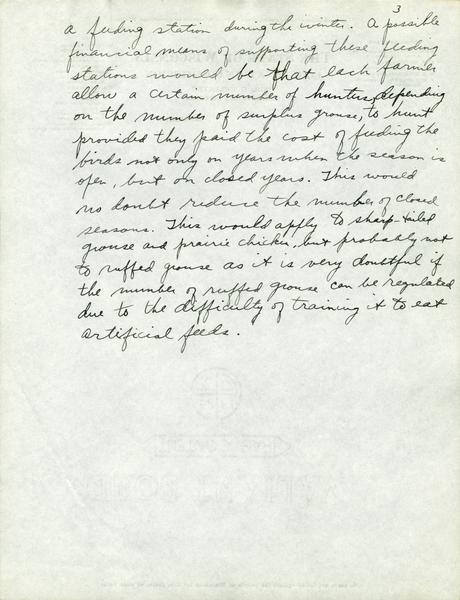 3
a feeding station during the winter. A possible
financial means of supporting these feeding
stations would be that each farmer
allow a certain number of hunters, depending
on the number of surplus grouse, to hunt
provided they paid the cost of feeding the
birds not only on years when the season is
open, but on closed years. This would
no doubt reduce the number of closed
seasons. This would apply to sharp-tailed
grouse and prairie chicken, but probably not
to ruffed grouse as it is very doubtful if
the number of ruffed grouse can be regulated
due to the difficulty of training it to eat
artificial feeds.